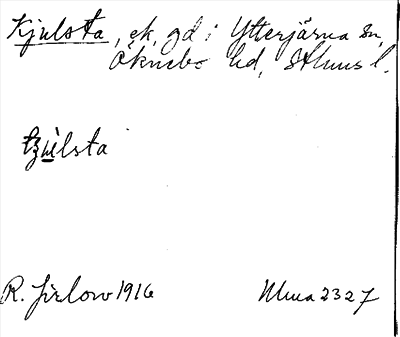 Kjulsta, ek, gd i Ytterjärna sn,
Öknebo hd, Sthms l.
R. Jirlow 1916
Muua 2327